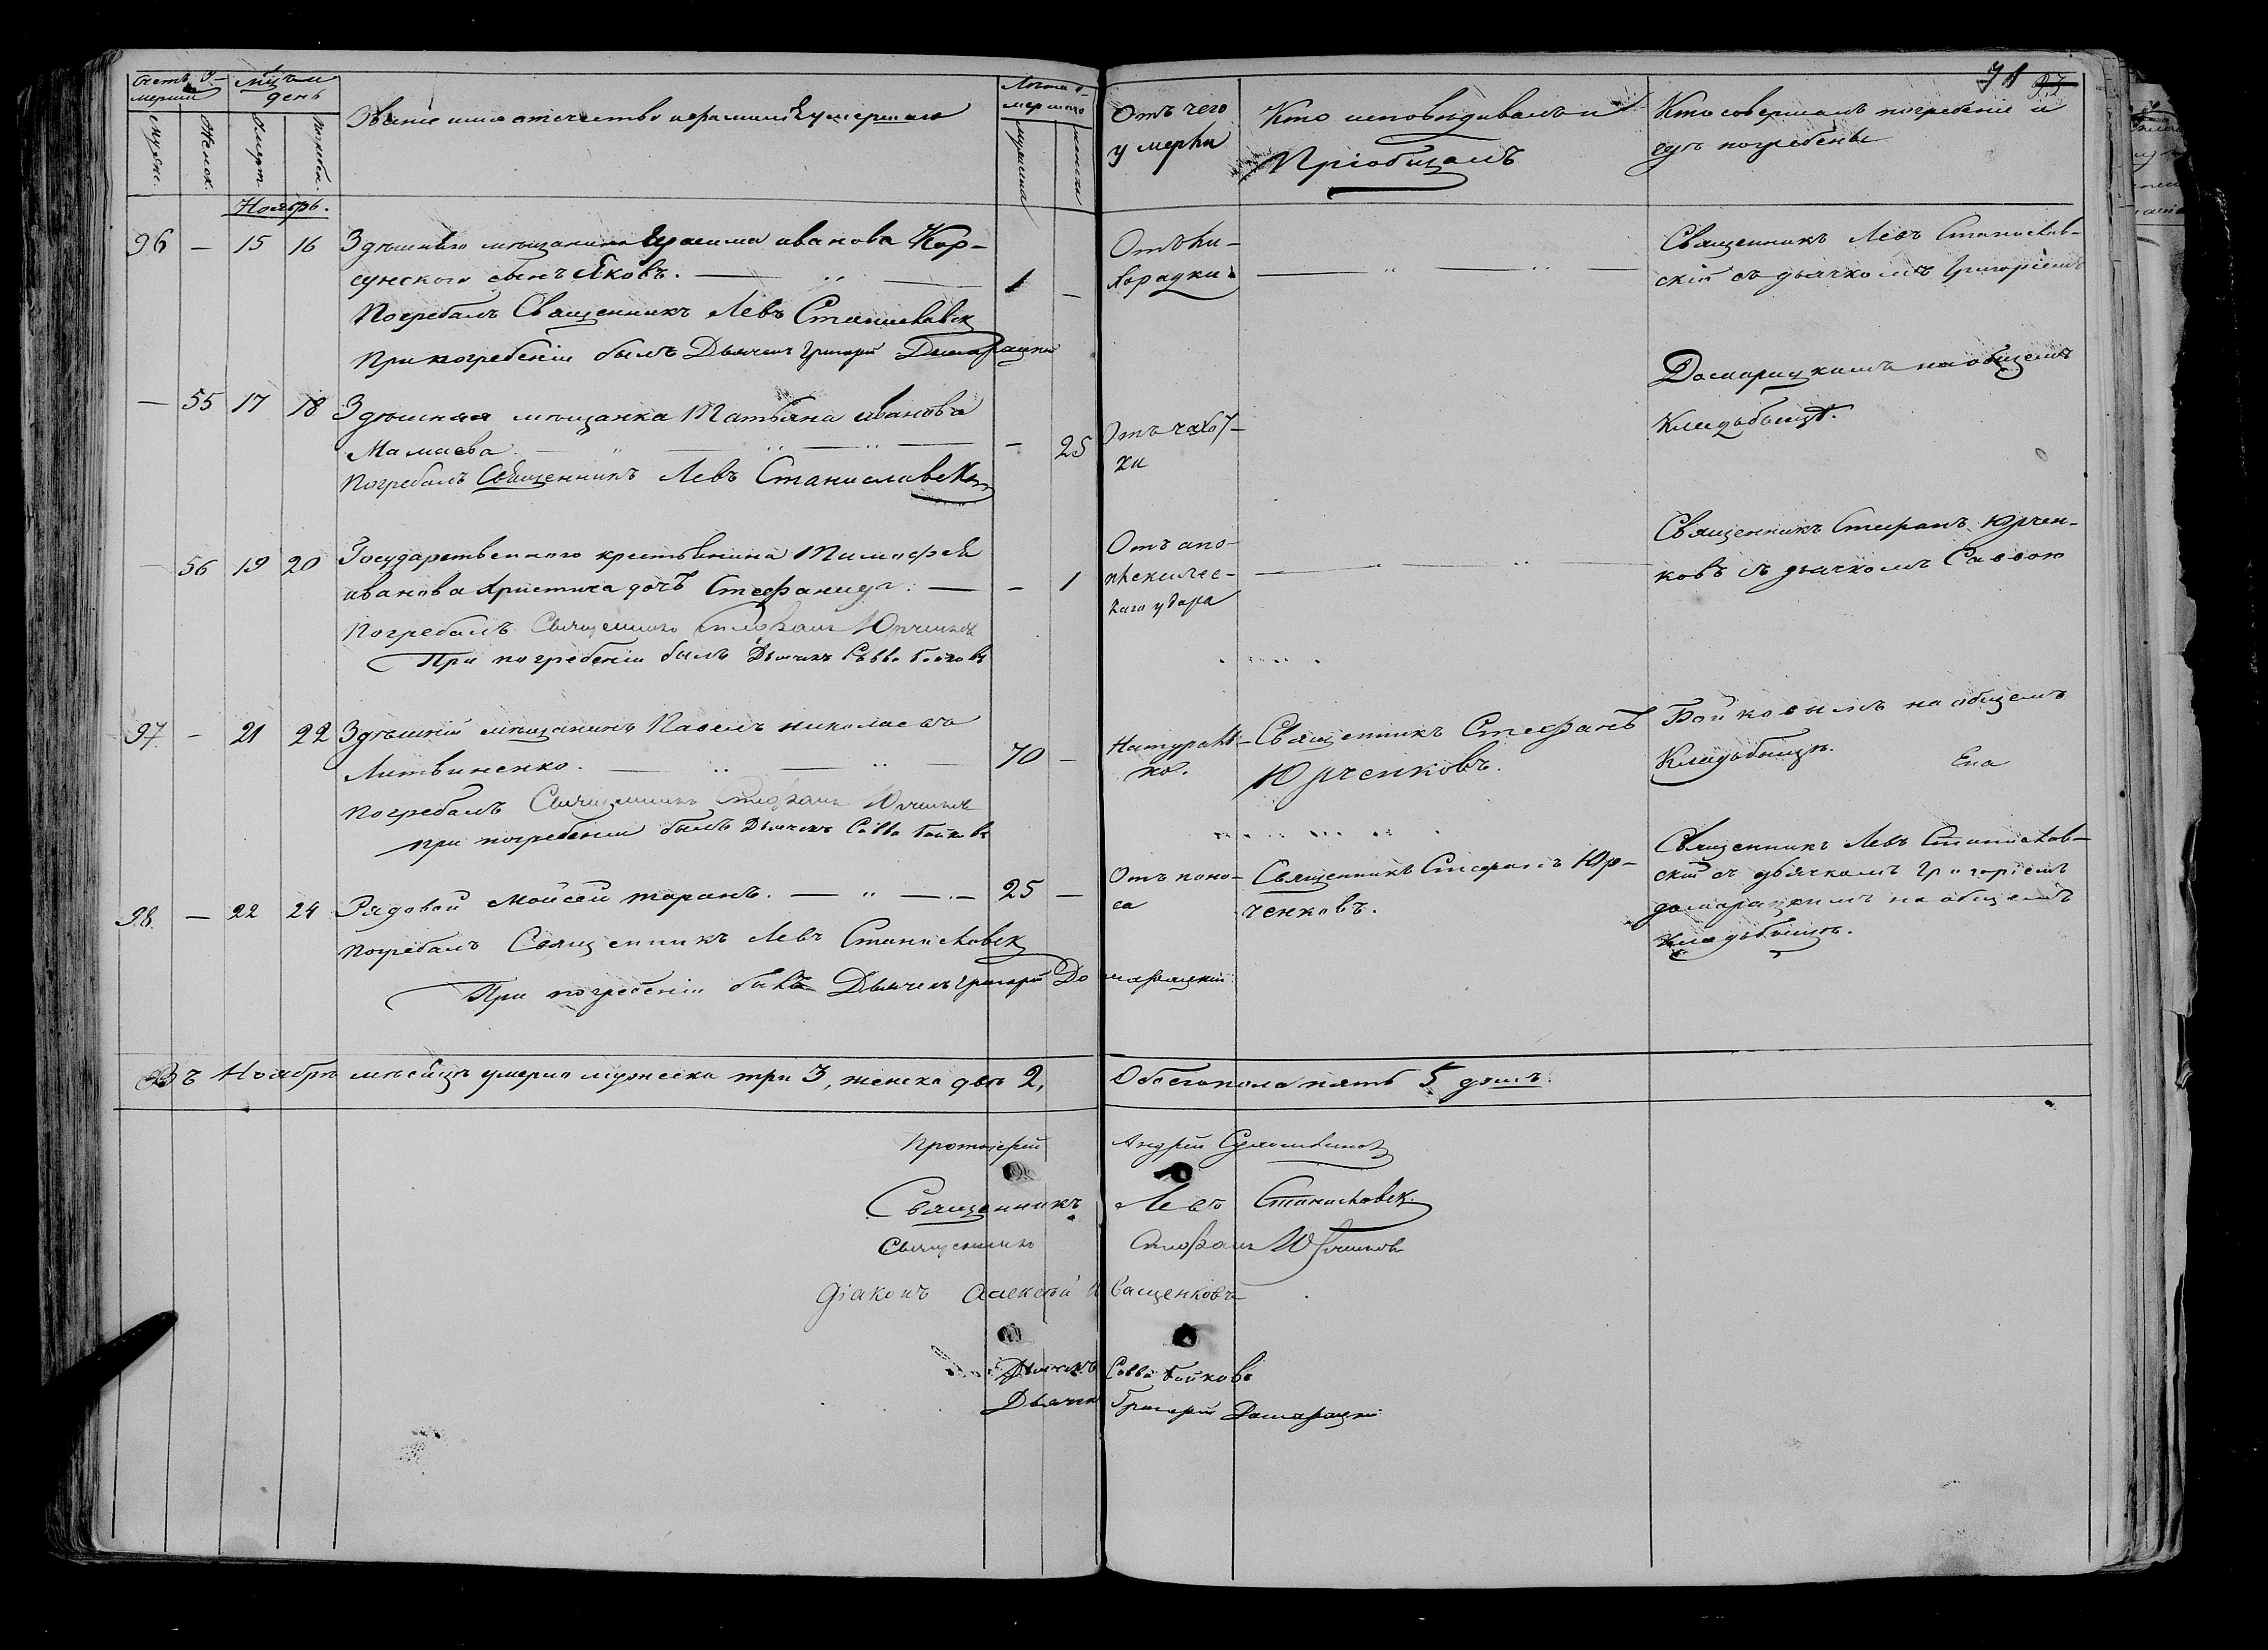 Счетъ у-
мерши
Мужес.
Женск.
Мцъ и
день
Смерт.
Погребен.
Званіе имя отечество и фамилія умершаго
Лета у-
мершаго
мужеска
женска
Отъ чего
умерли
Кто исповѣдивалъ и
Пріобщалъ
Кто совершалъ погребеніе и
гдѣ погребены
71
Ноябрь.
96 — 15 16 Здѣшняго мѣщанина Іванова Кор-
сунскаго сынъ Яковъ. 1 —
Погребалъ Священникъ Левъ Станиславск
При погребеніи былъ Дьячекъ Григорій Домарацкій
Отъ ли-
хорадки.
Священникъ Левъ Станислав-
скій съ дьячкомъ Григоріемъ
Домарацкимъ на общемъ
Кладьбищѣ.
— 55 17 18 Здѣшняя мѣщанка Татьяна иванова
Мамаева — 25
Погребалъ Священникъ Левъ Станиславск
Отъ чахот-
ки
— 56 19 20 Государственного крестьянина Тимофея
иванова Христича дочь Стефанида. — 1
Погребалъ Священникъ Стефанъ Юрченковъ
При погребеніи былъ Дьячекъ Савва Бойковъ
Отъ апо-
плексичес-
каго удара
Священникъ Стефанъ Юрчен-
ковъ съ дьячкомъ Саввою
Бойковымъ на общемъ
Кладьбищѣ.
97. — 21 22 Здѣшній мѣщанинъ Павелъ николаевъ
Литвиненко. 70 —
Погребалъ Священникъ Стефанъ Юрченковъ
при погребеніи былъ Дьячекъ Савва Бойковъ
Натураль-
но.
Священникъ Стефанъ
Юрченковъ.
98. — 22 24 Рядовой Мойсей таранъ. 25 —
Погребалъ Священникъ Левъ Станиславск
При погребеніи былъ Дьячекъ Григорій Домарацкій
Отъ поно-
са
Священникъ Стефанъ Юр-
ченковъ.
Священникъ Левъ Станислав-
скій съ дьячкомъ Григоріемъ
домарацкимъ на общемъ
Кладьбищѣ.
Въ Ноябрѣ мѣсяцѣ умерло мужеска три 3, женска двѣ 2, Обоегопола пять 5 душъ.
Протоіерей Андрей
Священникъ Левъ Станиславск.
Священникъ Стефанъ Юрченковъ
Діаконъ Алексѣй Иващенковъ
Дьячекъ Савва Бойковъ
Дьячекъ Григорій Домарацкій